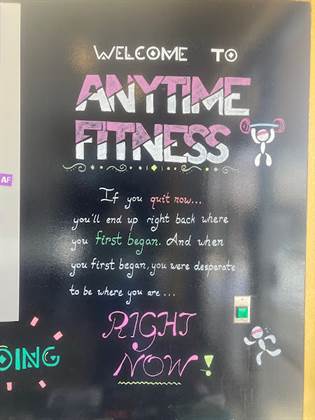 WELCOME TO
ANYTIME
FITNESS
AF
If you quit now...
you'll end up right back where
you first began. And when
you first began, you were desperate
to be where you are...
RIGHT
NOW!
OING